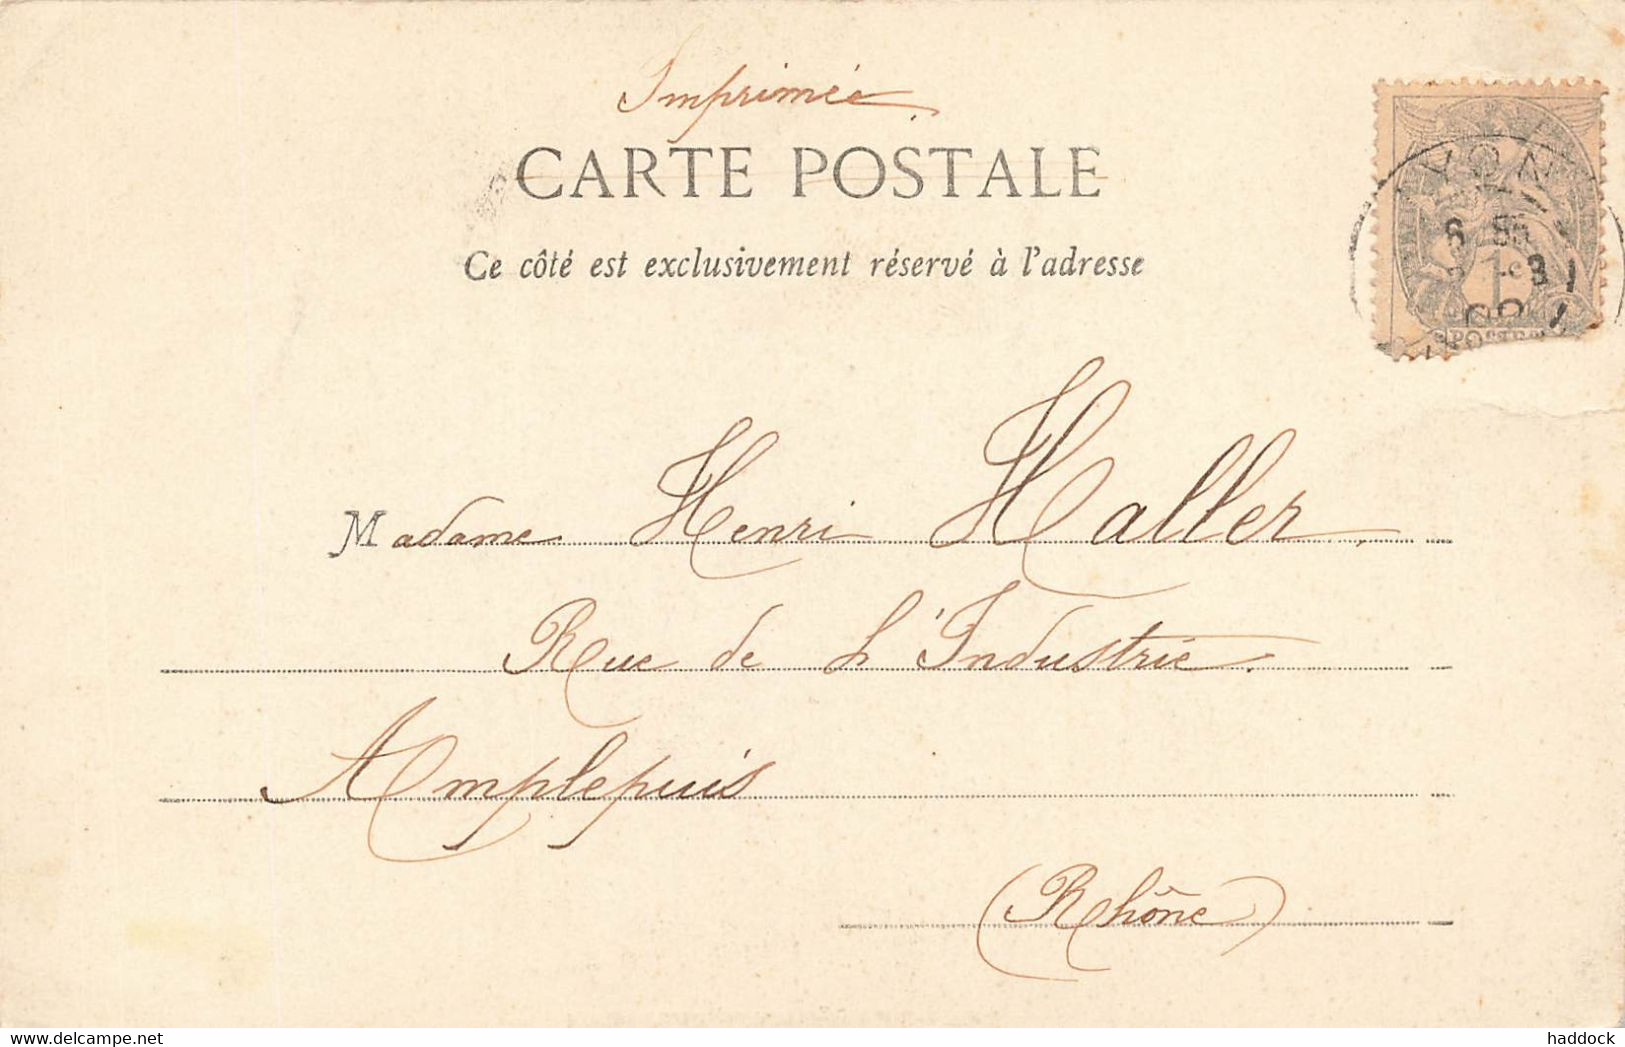 Imprimée
CARTE POSTALE
Ce côté est exclusivement réservé à l'adresse
YON
1c
POSTES
Madame Henri Haller.
Rue de L'Industrie.
Amplepuis
(Rhône)
www.delcampe.net
haddock